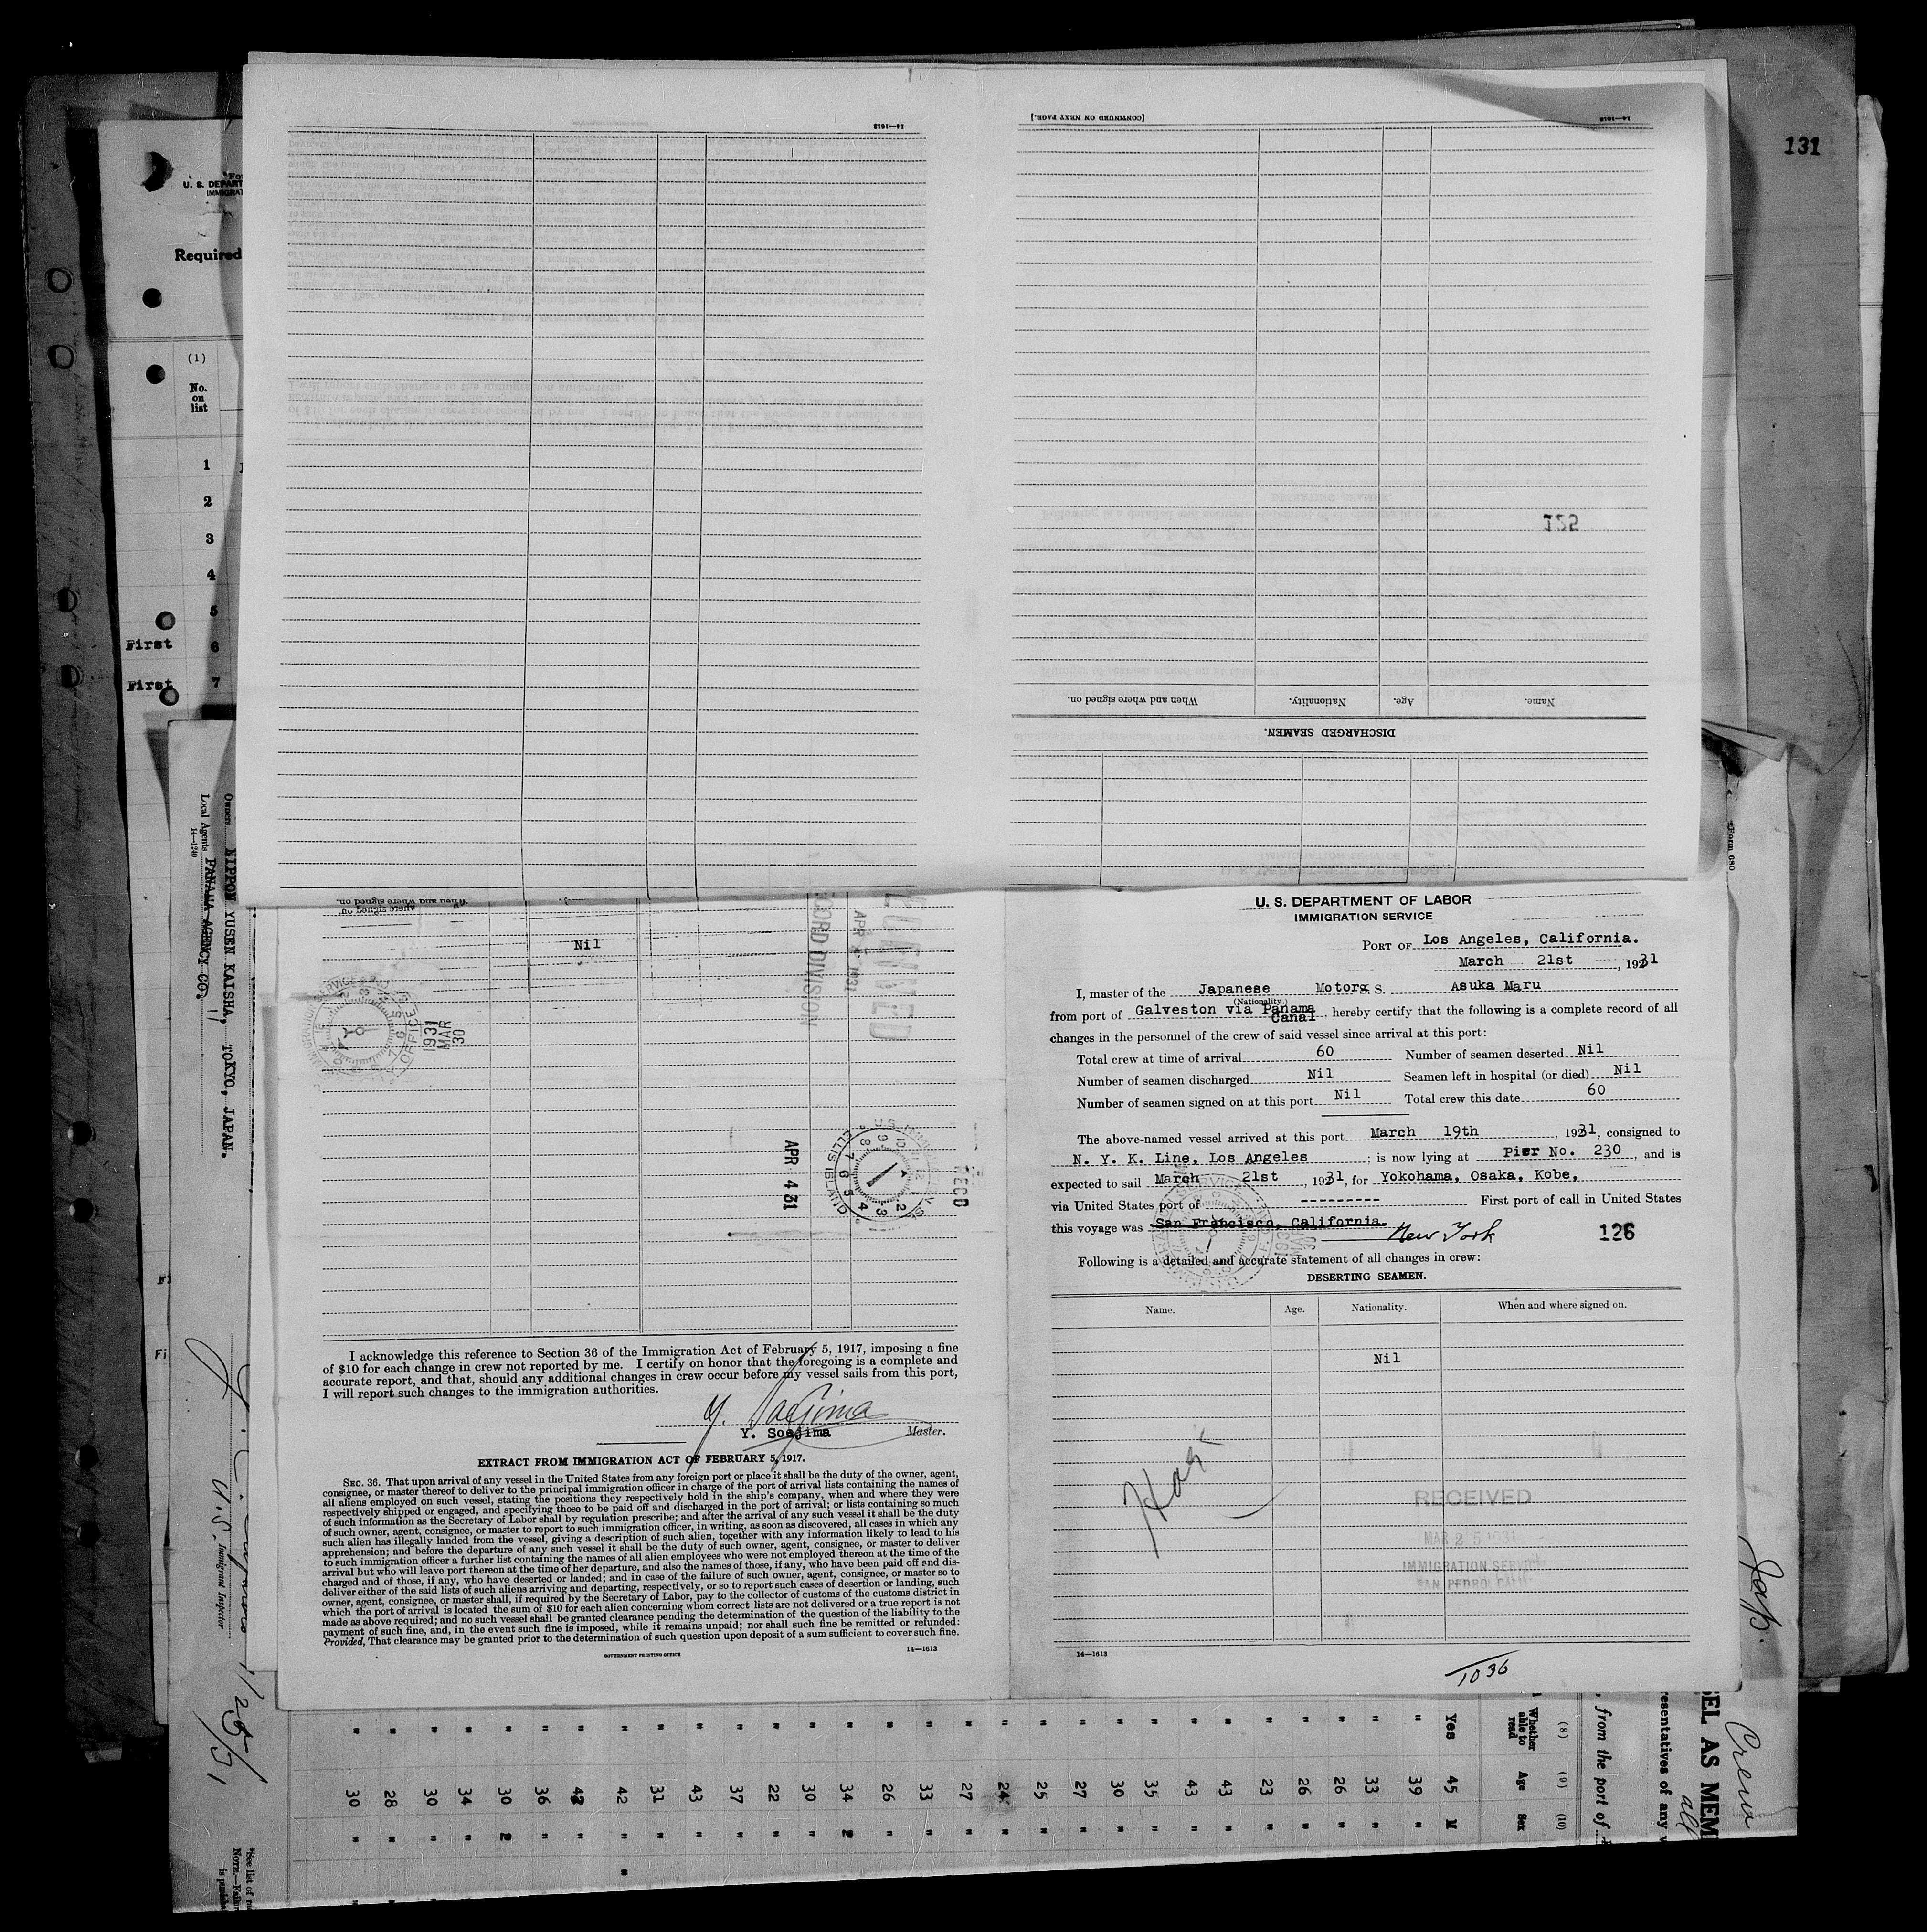 131
U. S. DEPART
IMMIGRAT
Required
(1)
No.
on
list
1
2
3
4
5
First 6
First 7
14—1613
[CONTINUED ON NEXT PAGE.]
14—1613
125
Name.
Age.
Nationality.
When and where signed on.
DISCHARGED SEAMEN.
Owners NIPPON YUSEN KAISHA, TOKYO, JAPAN.
Local Agents PANAMA AGENCY CO.
14—1240
Form 680
When and where signed on.
Nil
RECORD DIVISION
APR 1931
1931
MAR
30
APR 4 31
ELLIS ISLAND
REC'D
I acknowledge this reference to Section 36 of the Immigration Act of February 5, 1917, imposing a fine
of $10 for each change in crew not reported by me. I certify on honor that the foregoing is a complete and
accurate report, and that, should any additional changes in crew occur before my vessel sails from this port,
I will report such changes to the immigration authorities.
Y. Soejima
Y. Soejima Master.
EXTRACT FROM IMMIGRATION ACT OF FEBRUARY 5, 1917.
SEC. 36. That upon arrival of any vessel in the United States from any foreign port or place it shall be the duty of the owner, agent,
consignee, or master thereof to deliver to the principal immigration officer in charge of the port of arrival lists containing the names of
all aliens employed on such vessel, stating the positions they respectively hold in the ship's company, when and where they were
respectively shipped or engaged, and specifying those to be paid off and discharged in the port of arrival; or lists containing so much
of such information as the Secretary of Labor shall by regulation prescribe; and after the arrival of any such vessel it shall be the duty
of such owner, agent, consignee, or master to report to such immigration officer, in writing, as soon as discovered, all cases in which any
such alien has illegally landed from the vessel, giving a description of such alien, together with any information likely to lead to his
apprehension; and before the departure of any such vessel it shall be the duty of such owner, agent, consignee, or master to deliver
to such immigration officer a further list containing the names of all alien employees who were not employed thereon at the time of the
arrival but who will leave port thereon at the time of her departure, and also the names of those, if any, who have been paid off and dis-
charged and of those, if any, who have deserted or landed; and in case of the failure of such owner, agent, consignee, or master so to
deliver either of the said lists of such aliens arriving and departing, respectively, or so to report such cases of desertion or landing, such
owner, agent, consignee, or master shall, if required by the Secretary of Labor, pay to the collector of customs of the customs district in
which the port of arrival is located the sum of $10 for each alien concerning whom correct lists are not delivered or a true report is not
made as above required; and no such vessel shall be granted clearance pending the determination of the question of the liability to the
payment of such fine, and, in the event such fine is imposed, while it remains unpaid; nor shall such fine be remitted or refunded:
Provided, That clearance may be granted prior to the determination of such question upon deposit of a sum sufficient to cover such fine.
14—1613
GOVERNMENT PRINTING OFFICE
U. S. DEPARTMENT OF LABOR
IMMIGRATION SERVICE
PORT OF Los Angeles, California.
March 21st, 1931
I, master of the Japanese Motor S. S. Asuka Maru
(Nationality.)
from port of Galveston via Panama Canal hereby certify that the following is a complete record of all
changes in the personnel of the crew of said vessel since arrival at this port:
Total crew at time of arrival 60 Number of seamen deserted Nil
Number of seamen discharged Nil Seamen left in hospital (or died) Nil
Number of seamen signed on at this port Nil Total crew this date 60
The above-named vessel arrived at this port March 19th, 1931, consigned to
N. Y. K. Line, Los Angeles; is now lying at Pier No. 230, and is
expected to sail March 21st, 1931, for Yokohama, Osaka, Kobe,
via United States port of --------- First port of call in United States
this voyage was San Francisco, California. New York
126
Following is a detailed and accurate statement of all changes in crew:
DESERTING SEAMEN.
Name. Age. Nationality. When and where signed on.
Nil
RECEIVED
MAR 25 1931
IMMIGRATION SERVICE
SAN PEDRO CALIF.
14—1613
1036
Jap.
Crew
all
U.S. Immigrant Inspector
1/26/31
SEL AS MEM
resentatives of any v
, from the port of
(8) Whether able to read
(9) Age
(10) Sex
Yes 45 M
" 39 "
" 33 "
" 26 "
" 26 "
" 23 "
" 43 "
" 43 "
" 35 "
" 30 "
" 27 "
" 25 "
" 24 "
" 27 "
" 33 "
" 26 "
" 34 "
" 30 "
" 22 "
" 37 "
" 43 "
" 31 "
" 42 "
" 42 "
" 36 "
" 30 "
" 34 "
" 30 "
" 28 "
" 30 "